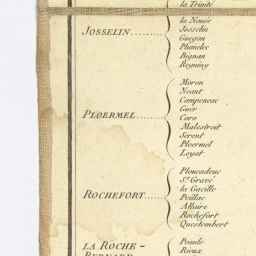 la Trinité
la Nouée
JOSSELIN........ Josselin
Guegon
Plumelec
Bignan
Reguiny
Moron
Neant
Campeneac
Guer
PLOERMEL........ Caro
Malestroit
Serent
Ploermel
Loyat
Pleucadeuc
St Gravé
la Gacilly
ROCHEFORT...... Peillac
Allaire
Rochefort
Questembert
LA ROCHE-
BERNARD
Peaule
Rieux